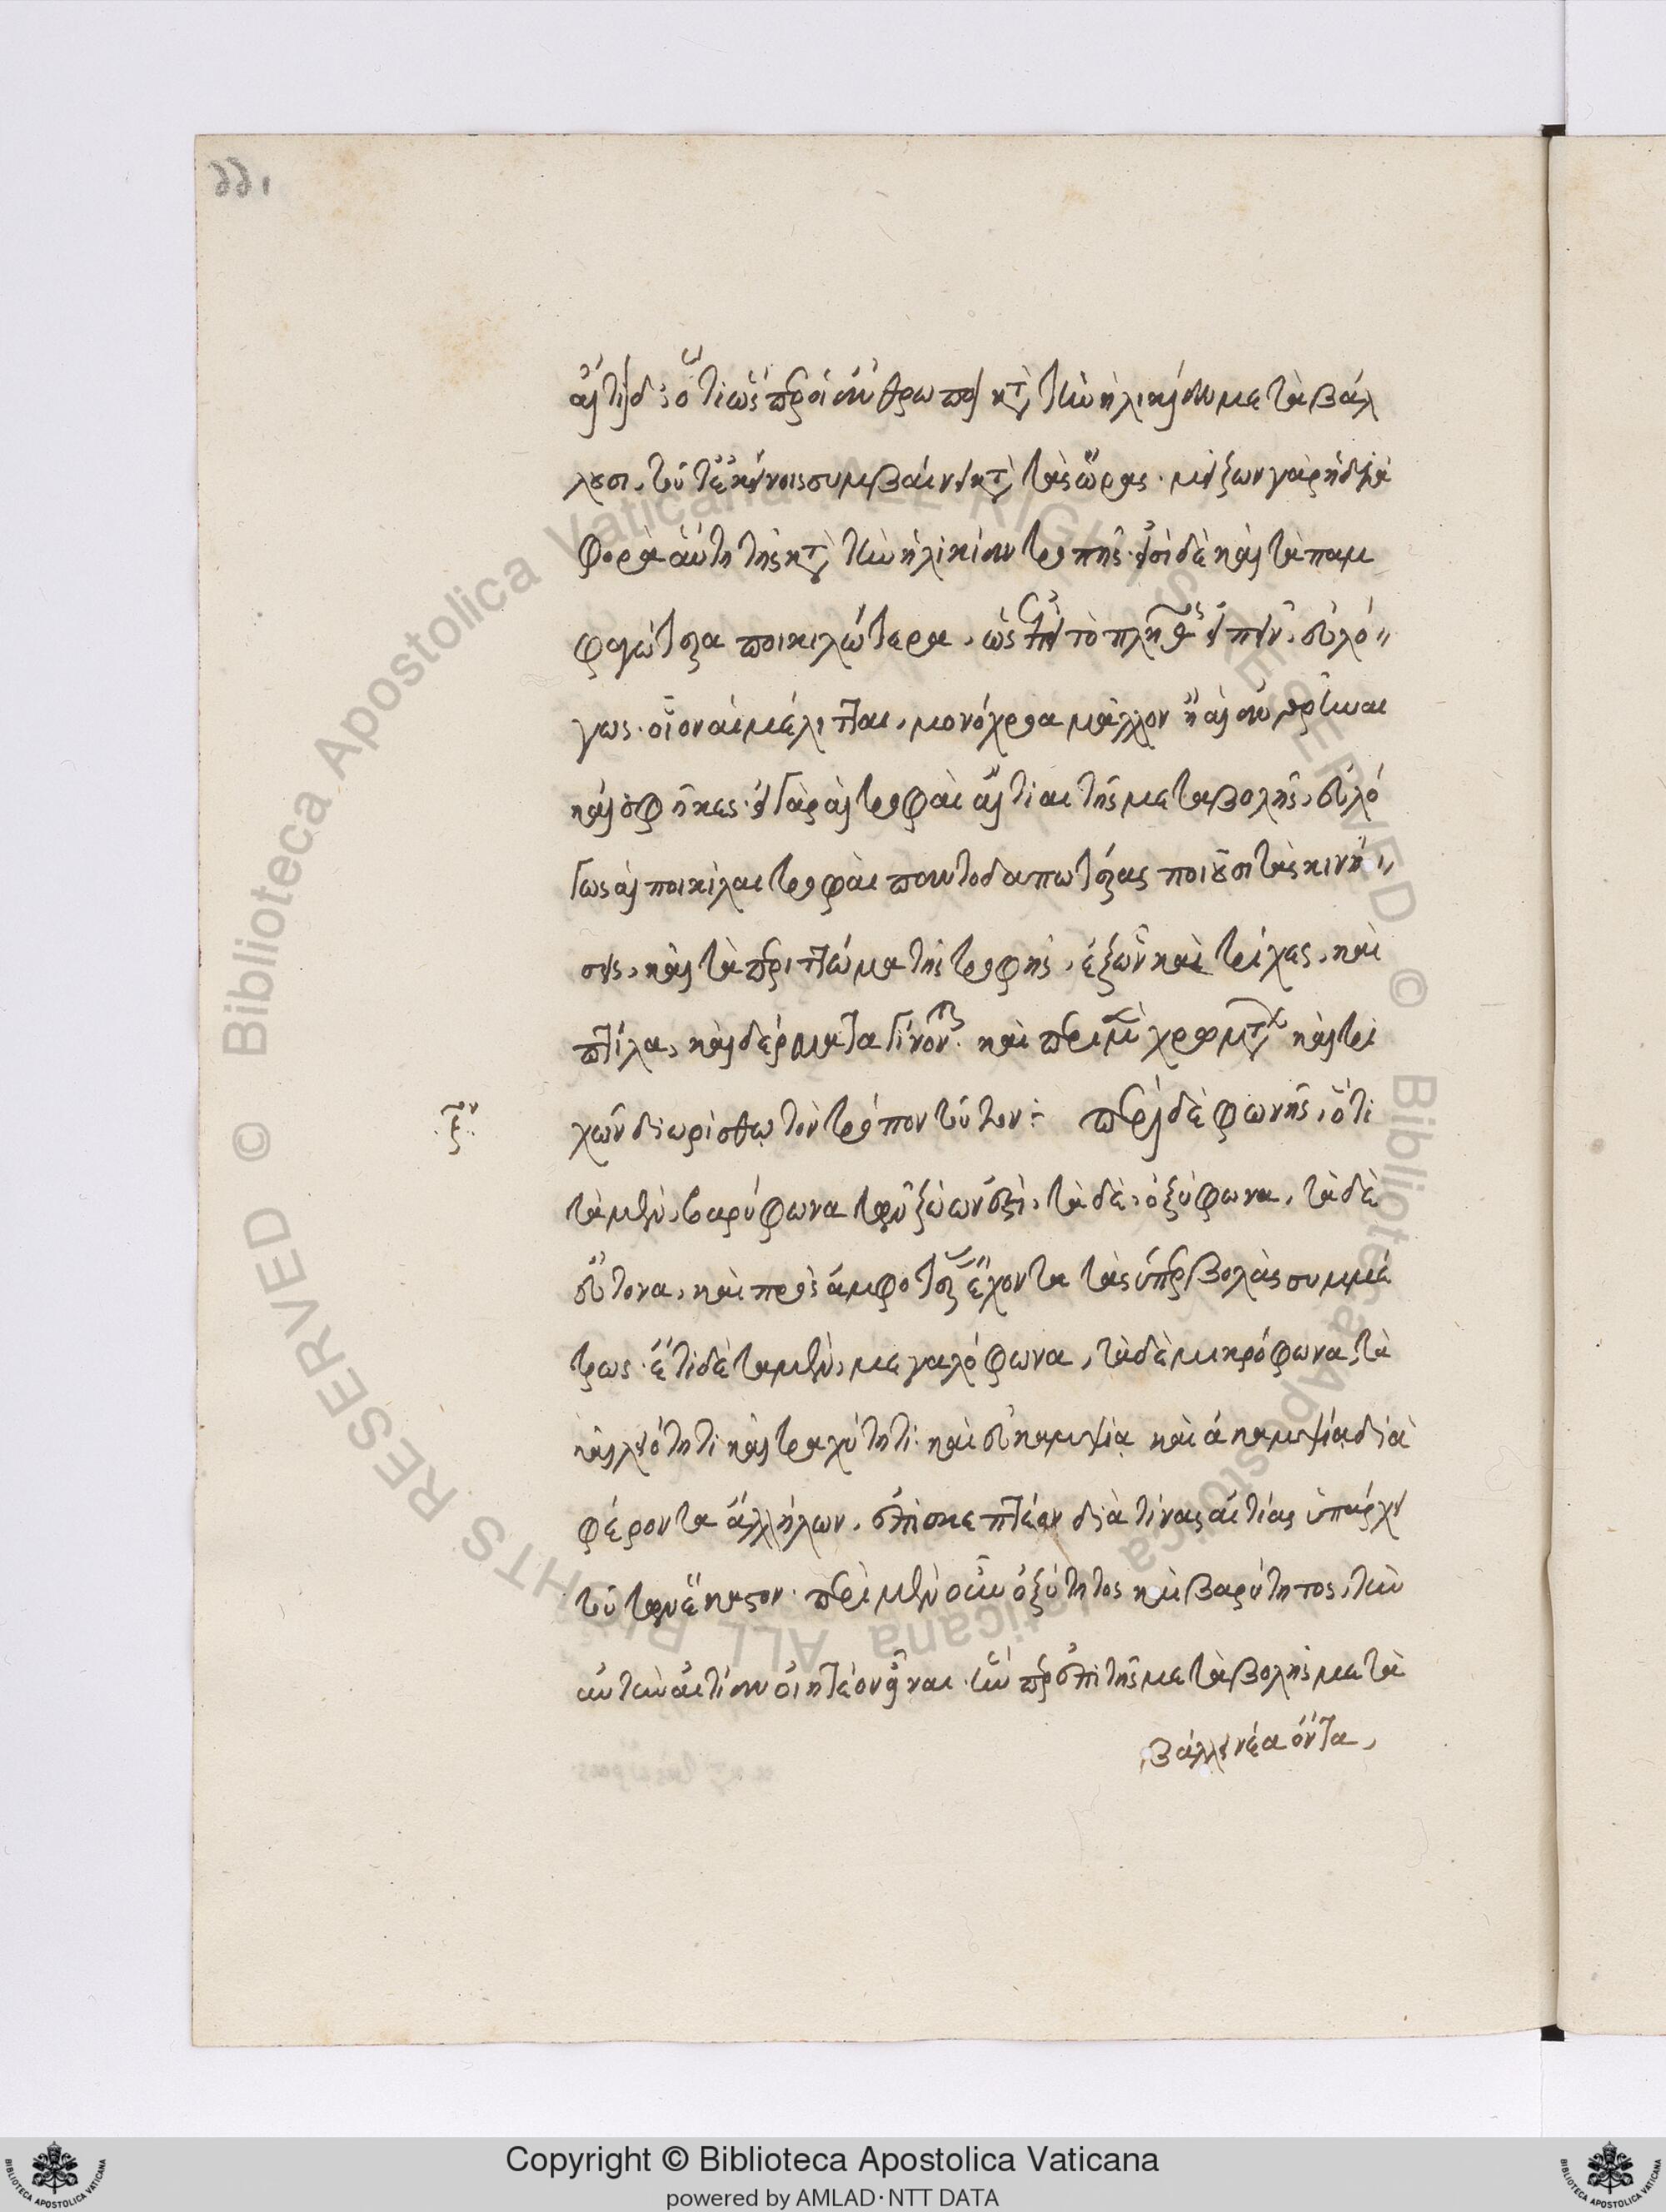 αἴτιον δ' ὅτι ὥσπερ οἱ ἄνθρωποι κατὰ τὴν ἡλικίαν μεταβάλ
λουσι, τοῦτ' ἐκείνοις συμβαίνει κατὰ τὰς ὥρας. μείζων γὰρ ἡ δια
φορὰ αὕτη τῆς κατὰ τὴν ἡλικίαν τροπῆς. εἰσὶ δὲ καὶ τὰ παμ
φαγώτερα ποικιλώτερα, ὡς ἐπὶ τὸ πλῆθος εἰπεῖν, εὐλό
γως. οἷον αἱ μέλιτται, μονόχροα μᾶλλον ἢ αἱ ἀνθρῆναι
καὶ σφῆκες. εἰ γὰρ αἱ τροφαὶ αἴτιαι τῆς μεταβολῆς, εὐλό
γως αἱ ποικίλαι τροφαὶ παντοδαπωτέρας ποιοῦσι τὰς κινή
σεις, καὶ τὰ περιττώματα τῆς τροφῆς, ἐξ ὧν καὶ τρίχες, καὶ
πτίλα, καὶ δέρματα γίνονται. καὶ περὶ μὲν χρωμάτων καὶ τρι
χῶν διωρίσθω τὸν τρόπον τοῦτον: περὶ δὲ φωνῆς, ὅτι
τὰ μὲν, βαρύφωνα τῶν ζώων ἐστὶ, τὰ δὲ, ὀξύφωνα, τὰ δὲ
εὔτονα, καὶ πρὸς ἀμφοτέρας ἔχοντα τὰς ὑπερβολὰς συμμέ
τρως. ἔτι δὲ τὰ μὲν, μεγαλόφωνα, τὰ δὲ μικρόφωνα, τὰ
καὶ λειότητι καὶ τραχύτητι καὶ εὐκαμψία καὶ ἀκαμψία δια
φέροντα ἀλλήλων, ἐπισκεπτέον διὰ τίνας αἰτίας ὑπάρχει
τούτων ἕκαστον. περὶ μὲν οὖν ὀξύτητος καὶ βαρύτητος, τὴν
αὐτὴν αἰτίαν οἰητέον εἶναι ἥνπερ ἐπὶ τῆς μεταβολῆς μετα
βάλλει νέα ὄντα,